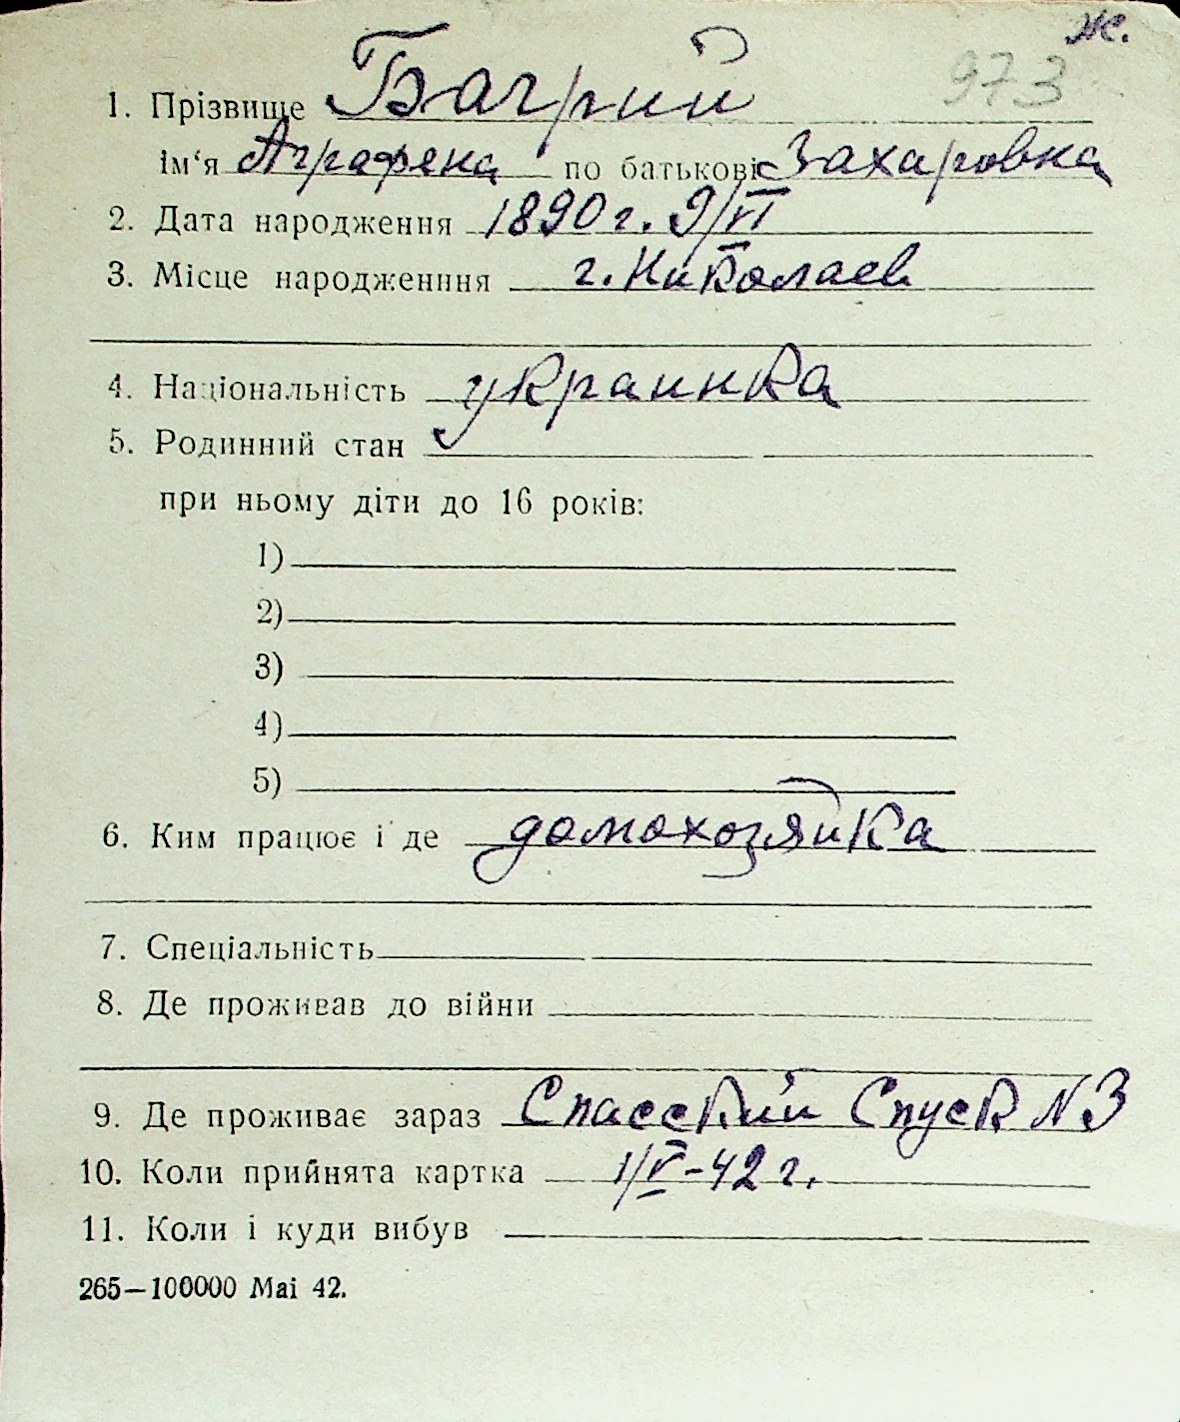 ж.
973
1. Прізвище Багрий
ім‘я Аграфена по батькові Захаровна
2. Дата народження 1890 г. 9/VI
3. Місце народженння г. Николаев
4. Національність украинка
5. Родинний стан
при ньому діти до 16 років:
1)
2)
3)
4)
5)
6. Ким працює і де домохозяйка
7. Спеціальність
8. Де проживав до війни
9. Де проживає зараз Спасский Спуск N 3
10. Коли прийнята картка 1/V-42 г.
11. Коли і куди вибув
265—100000 Mai 42.